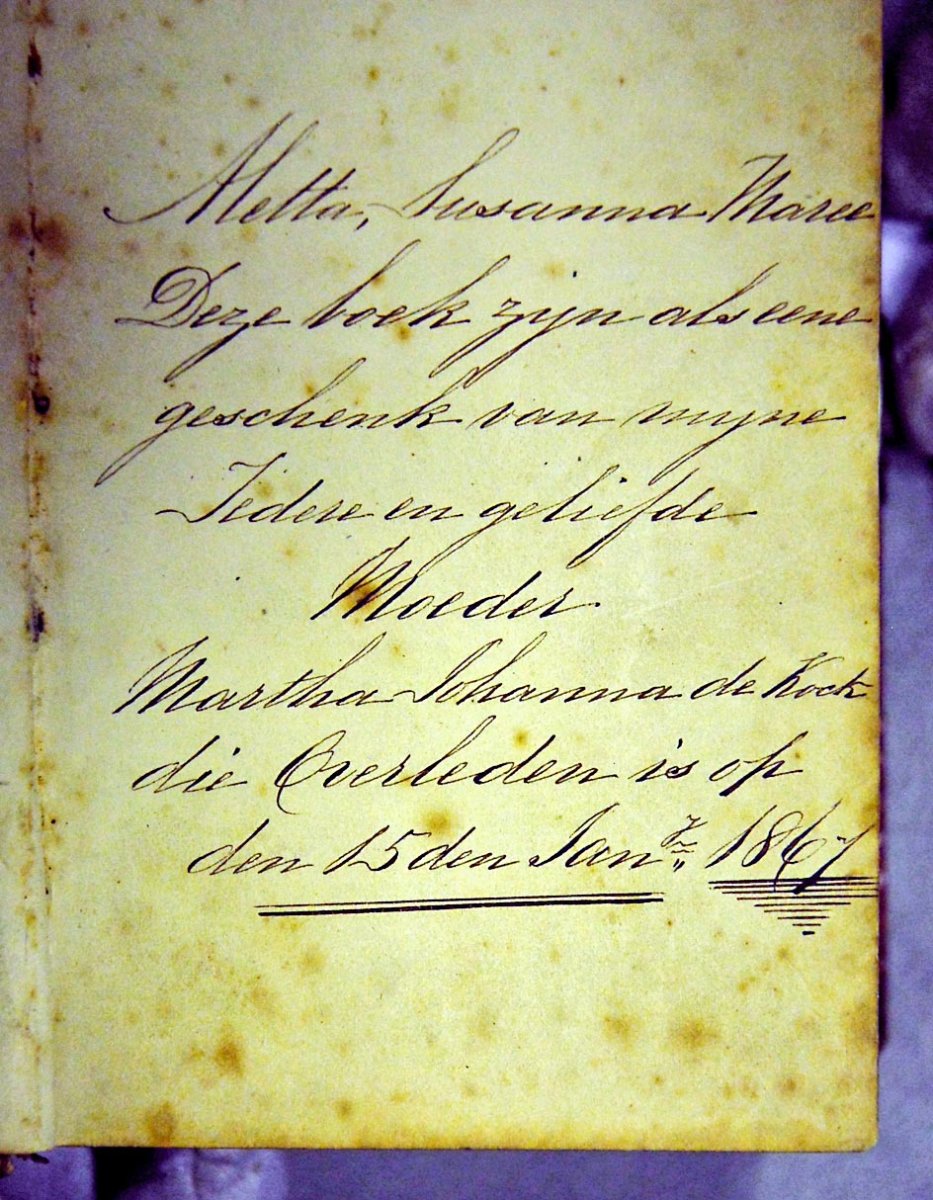 Aletta, Susanna Maree
Deze boek zijn als eene
geschenk van myne
Tedere en geliefde
Moeder
Martha Johanna de Kock
die Overleden is op
den 15 den Jan.ry 1867